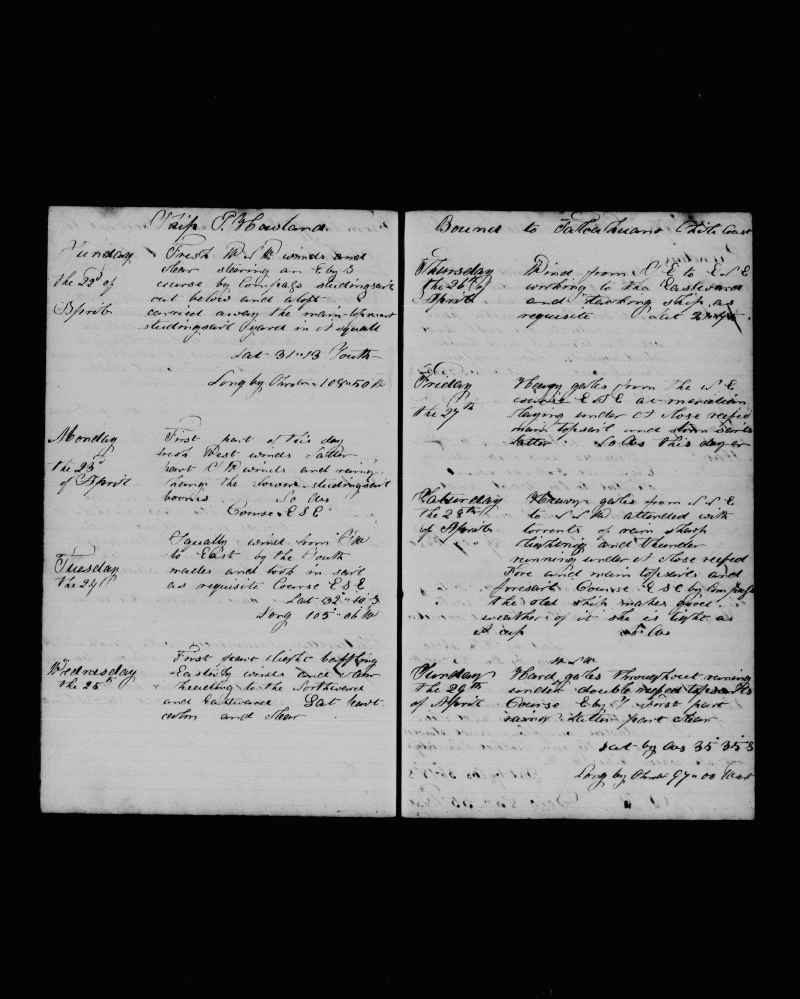 Ship P. Howland
Sunday
the 22d of
April
Fresh W S W winds and
clear stearing an E by S
course by Compass studingsails
out below and aloft
carried away the main topmast
studingsail yard in a squall
Lat 31"13 South
Long by Chron 108"50 W
Monday
the 23d
of April
First part of this day
fresh West winds Latter
part winds and rainy
the lower studingsail
booms No Obs
Course E S E
Tuesday
the 24th
Squally wind from
to East by the South
made and took in sail
as requisite Course E S E
Lat 32"10 S
Long 105"06 W
Wednesday
the 25th
First part light baffling
Easterly winds and clear
heading to the Northward
and Eastward Last part
calm and clear
Bound to Talcahuano Chile Coast
Thursday
the 26th of
April
Wind from to E S E
working to the Eastward
and tacking ship as
requisite Lat
Friday
the 27th
Heavy gales from the N E
course E S E at meridian
laying under a close reefed
main topsail and
latter No Obs this day
Saturday
the 28th
of April
Heavy gales from
to attended with
torrents of rain sharp
lightning and thunder
running under a close reefed
Fore and main topsails and
foresail Course E S E by Compass
the old ship makes good
weather of it she is tight as
a cup no Obs
Sunday
the 29th
of April
W S W
Hard gales throughout running
under double reefed topsails
Course E by S First part
rainy Latter part clear
Lat by Obs 35"35 S
Long by Chron 97"00 West